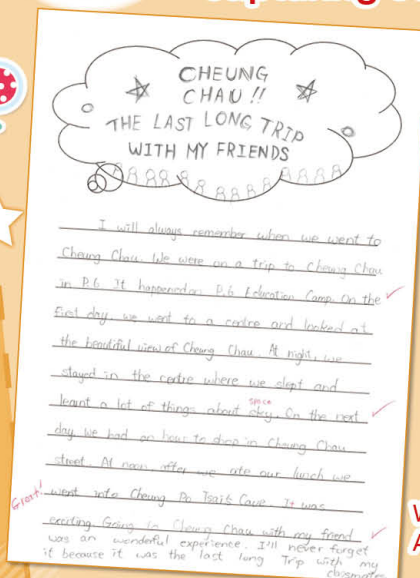 CHEUNG
CHAU!!
THE LAST LONG TRIP
WITH MY FRIENDS
I will always remember when we went to
Cheung Chau. We were on a trip to Cheung Chau
in P.6 It happened on P.6 Education Camp. On the
first day, we went to a centre and looked at
the beautiful view of Cheung Chau. At night, we
stayed in the centre where we slept and
space
learnt a lot of things about sky. On the next
day we had an hour to shop in Cheung Chau
street. At noon after we ate our lunch we
Great! went into Cheung Po Tsai's Cave. It was
exciting. Going in Cheung Chau with my friend
was an wonderful experience. I'll never forget
it because it was the last long Trip with my
classmates